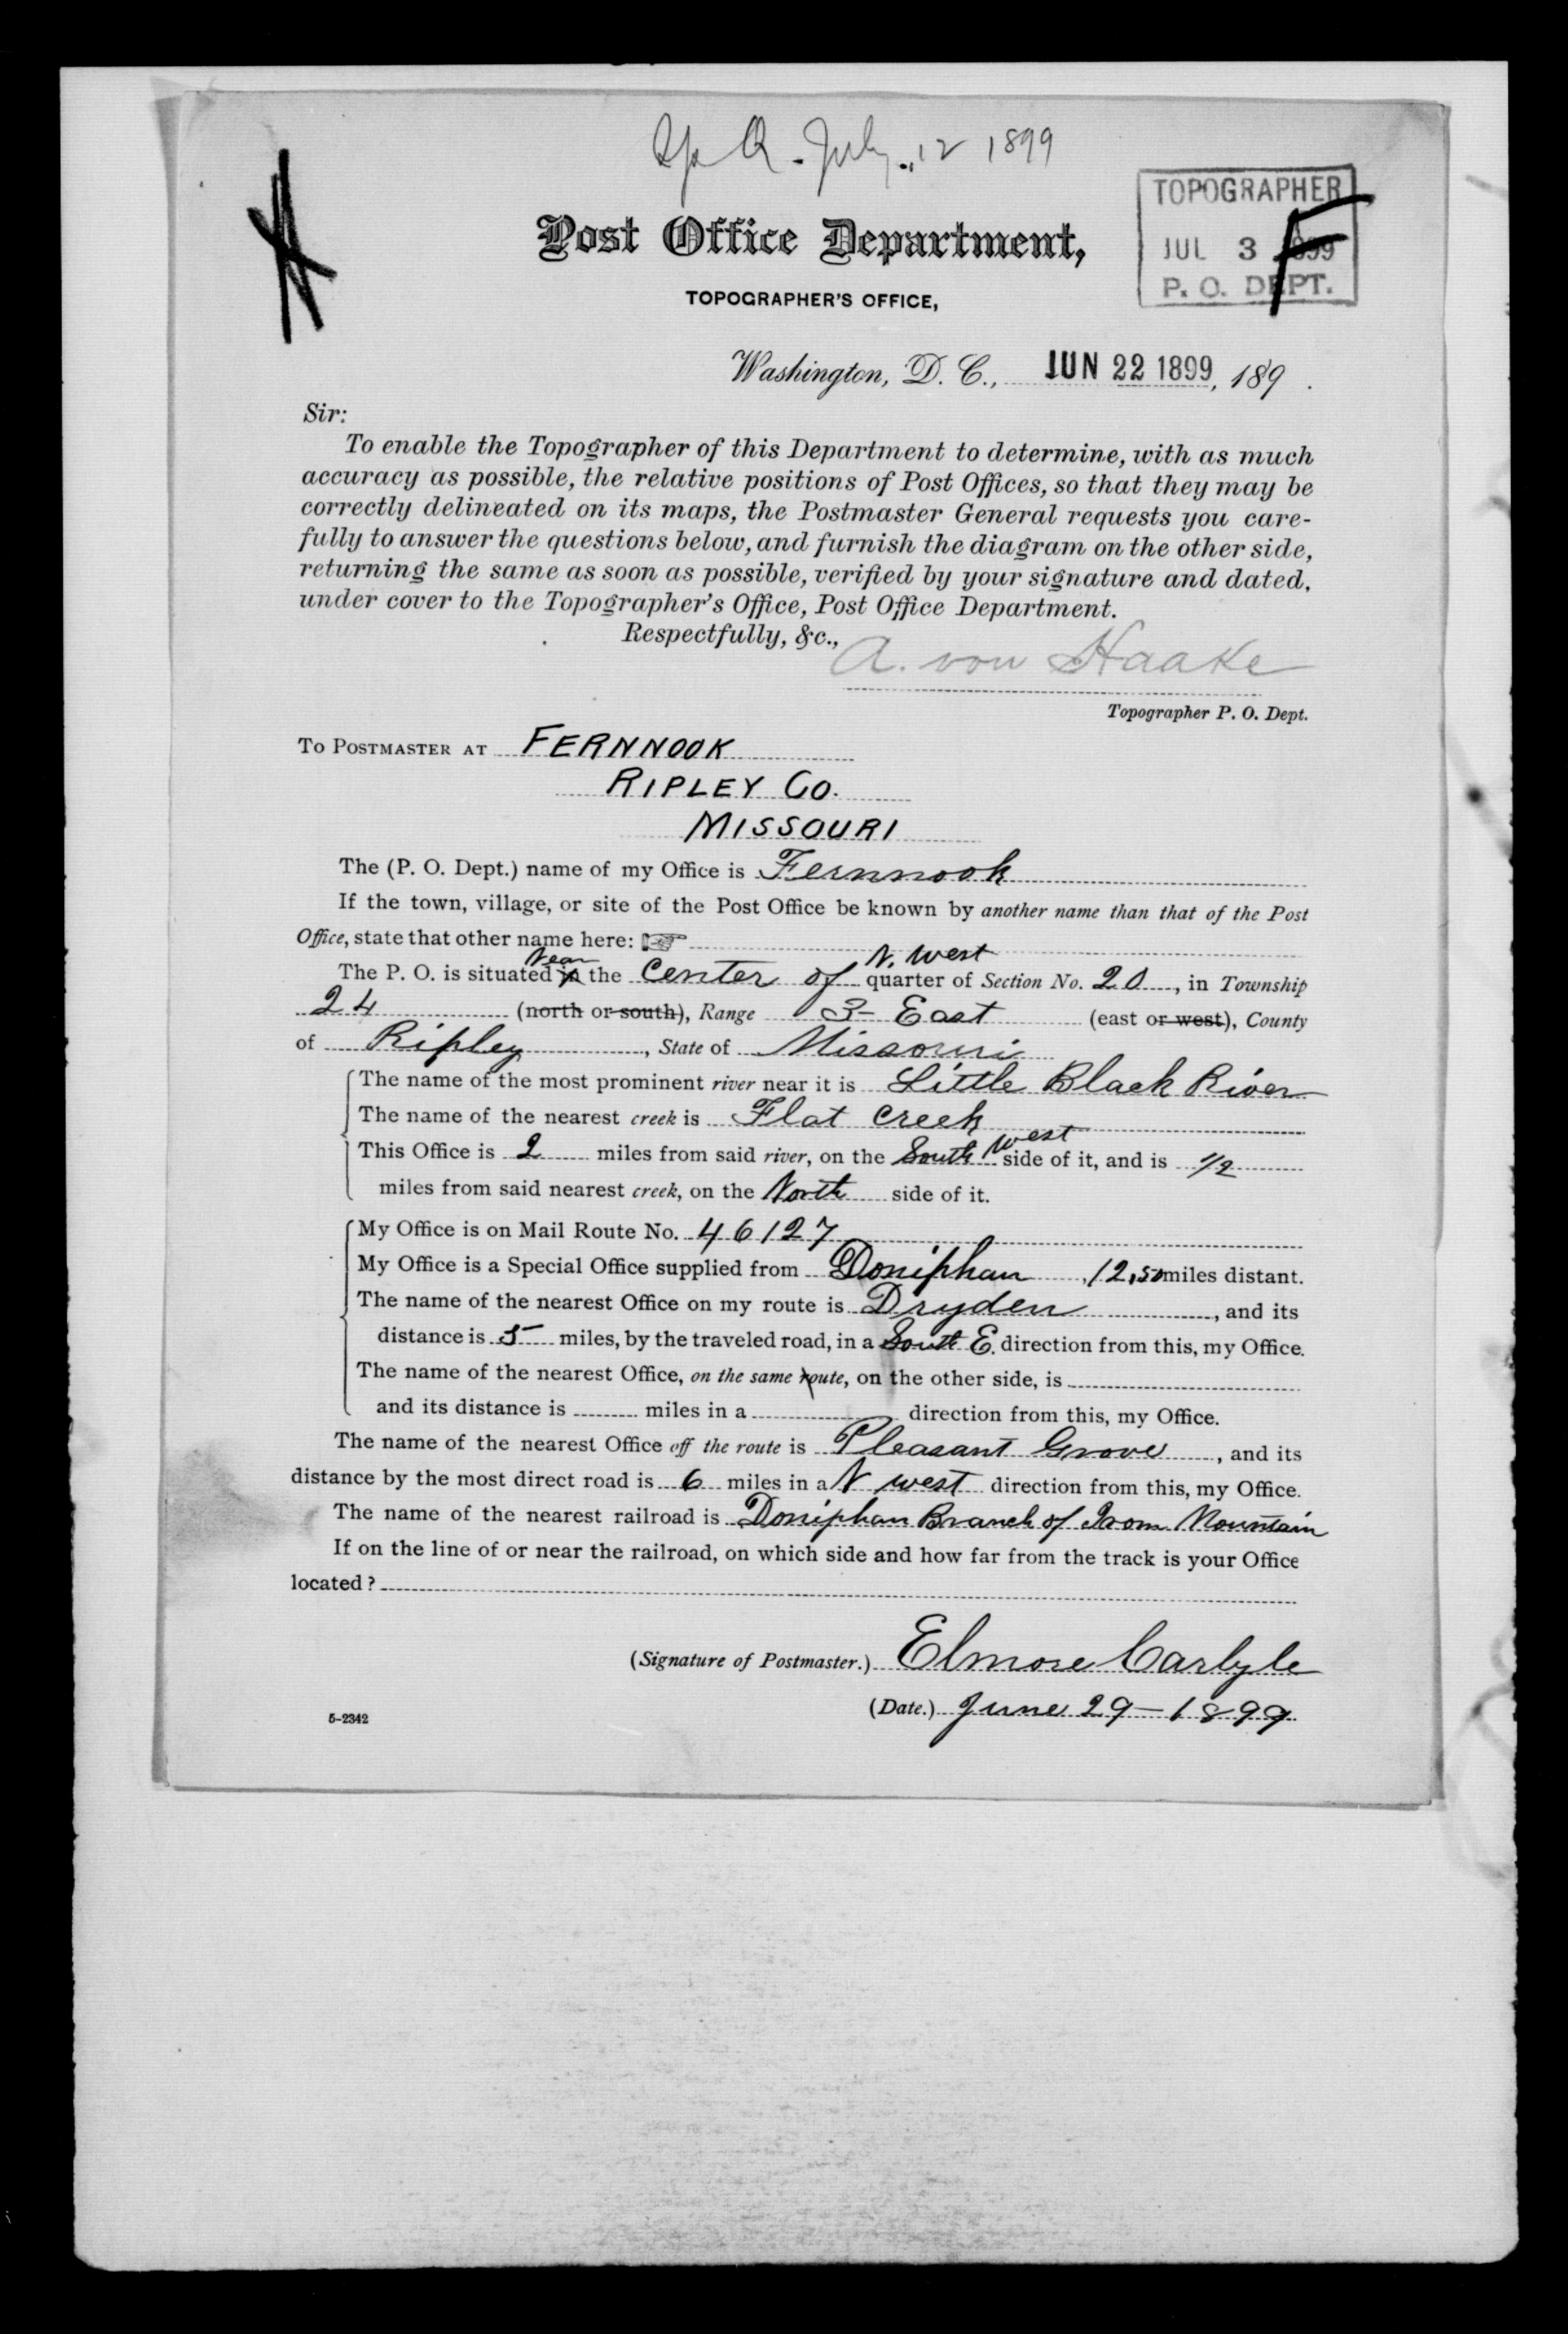 July 12 1899
TOPOGRAPHER
JUL 3 1899
P. O. DEPT.
F
Post Office Department,
TOPOGRAPHER'S OFFICE,
Washington, D. C., JUN 22 1899, 189 .
Sir:
To enable the Topographer of this Department to determine, with as much
accuracy as possible, the relative positions of Post Offices, so that they may be
correctly delineated on its maps, the Postmaster General requests you care-
fully to answer the questions below, and furnish the diagram on the other side,
returning the same as soon as possible, verified by your signature and dated,
under cover to the Topographer's Office, Post Office Department.
Respectfully, &c.,
A. von Haake
Topographer P. O. Dept.
TO POSTMASTER AT FERNNOOK
RIPLEY CO.
MISSOURI
The (P. O. Dept.) name of my Office is Fernnook
If the town, village, or site of the Post Office be known by another name than that of the Post
Office, state that other name here: ☞
Near N. West
The P. O. is situated in the Center of quarter of Section No. 20, in Township
24 (north or south), Range 3- East (east or west), County
of Ripley, State of Missouri
The name of the most prominent river near it is Little Black River
The name of the nearest creek is Flat Creek
This Office is 2 miles from said river, on the South West side of it, and is 1/2
miles from said nearest creek, on the North side of it.
My Office is on Mail Route No. 46127
My Office is a Special Office supplied from Doniphan, 12,50 miles distant.
The name of the nearest Office on my route is Dryden, and its
distance is 5 miles, by the traveled road, in a South E. direction from this, my Office.
The name of the nearest Office, on the same route, on the other side, is
and its distance is miles in a direction from this, my Office.
The name of the nearest Office off the route is Pleasant Grove, and its
distance by the most direct road is 6 miles in a N west direction from this, my Office.
The name of the nearest railroad is Doniphan Branch of Iron Mountain
If on the line of or near the railroad, on which side and how far from the track is your Office
located?
(Signature of Postmaster.) Elmore Carlyle
(Date.) June 29-1899
5-2342